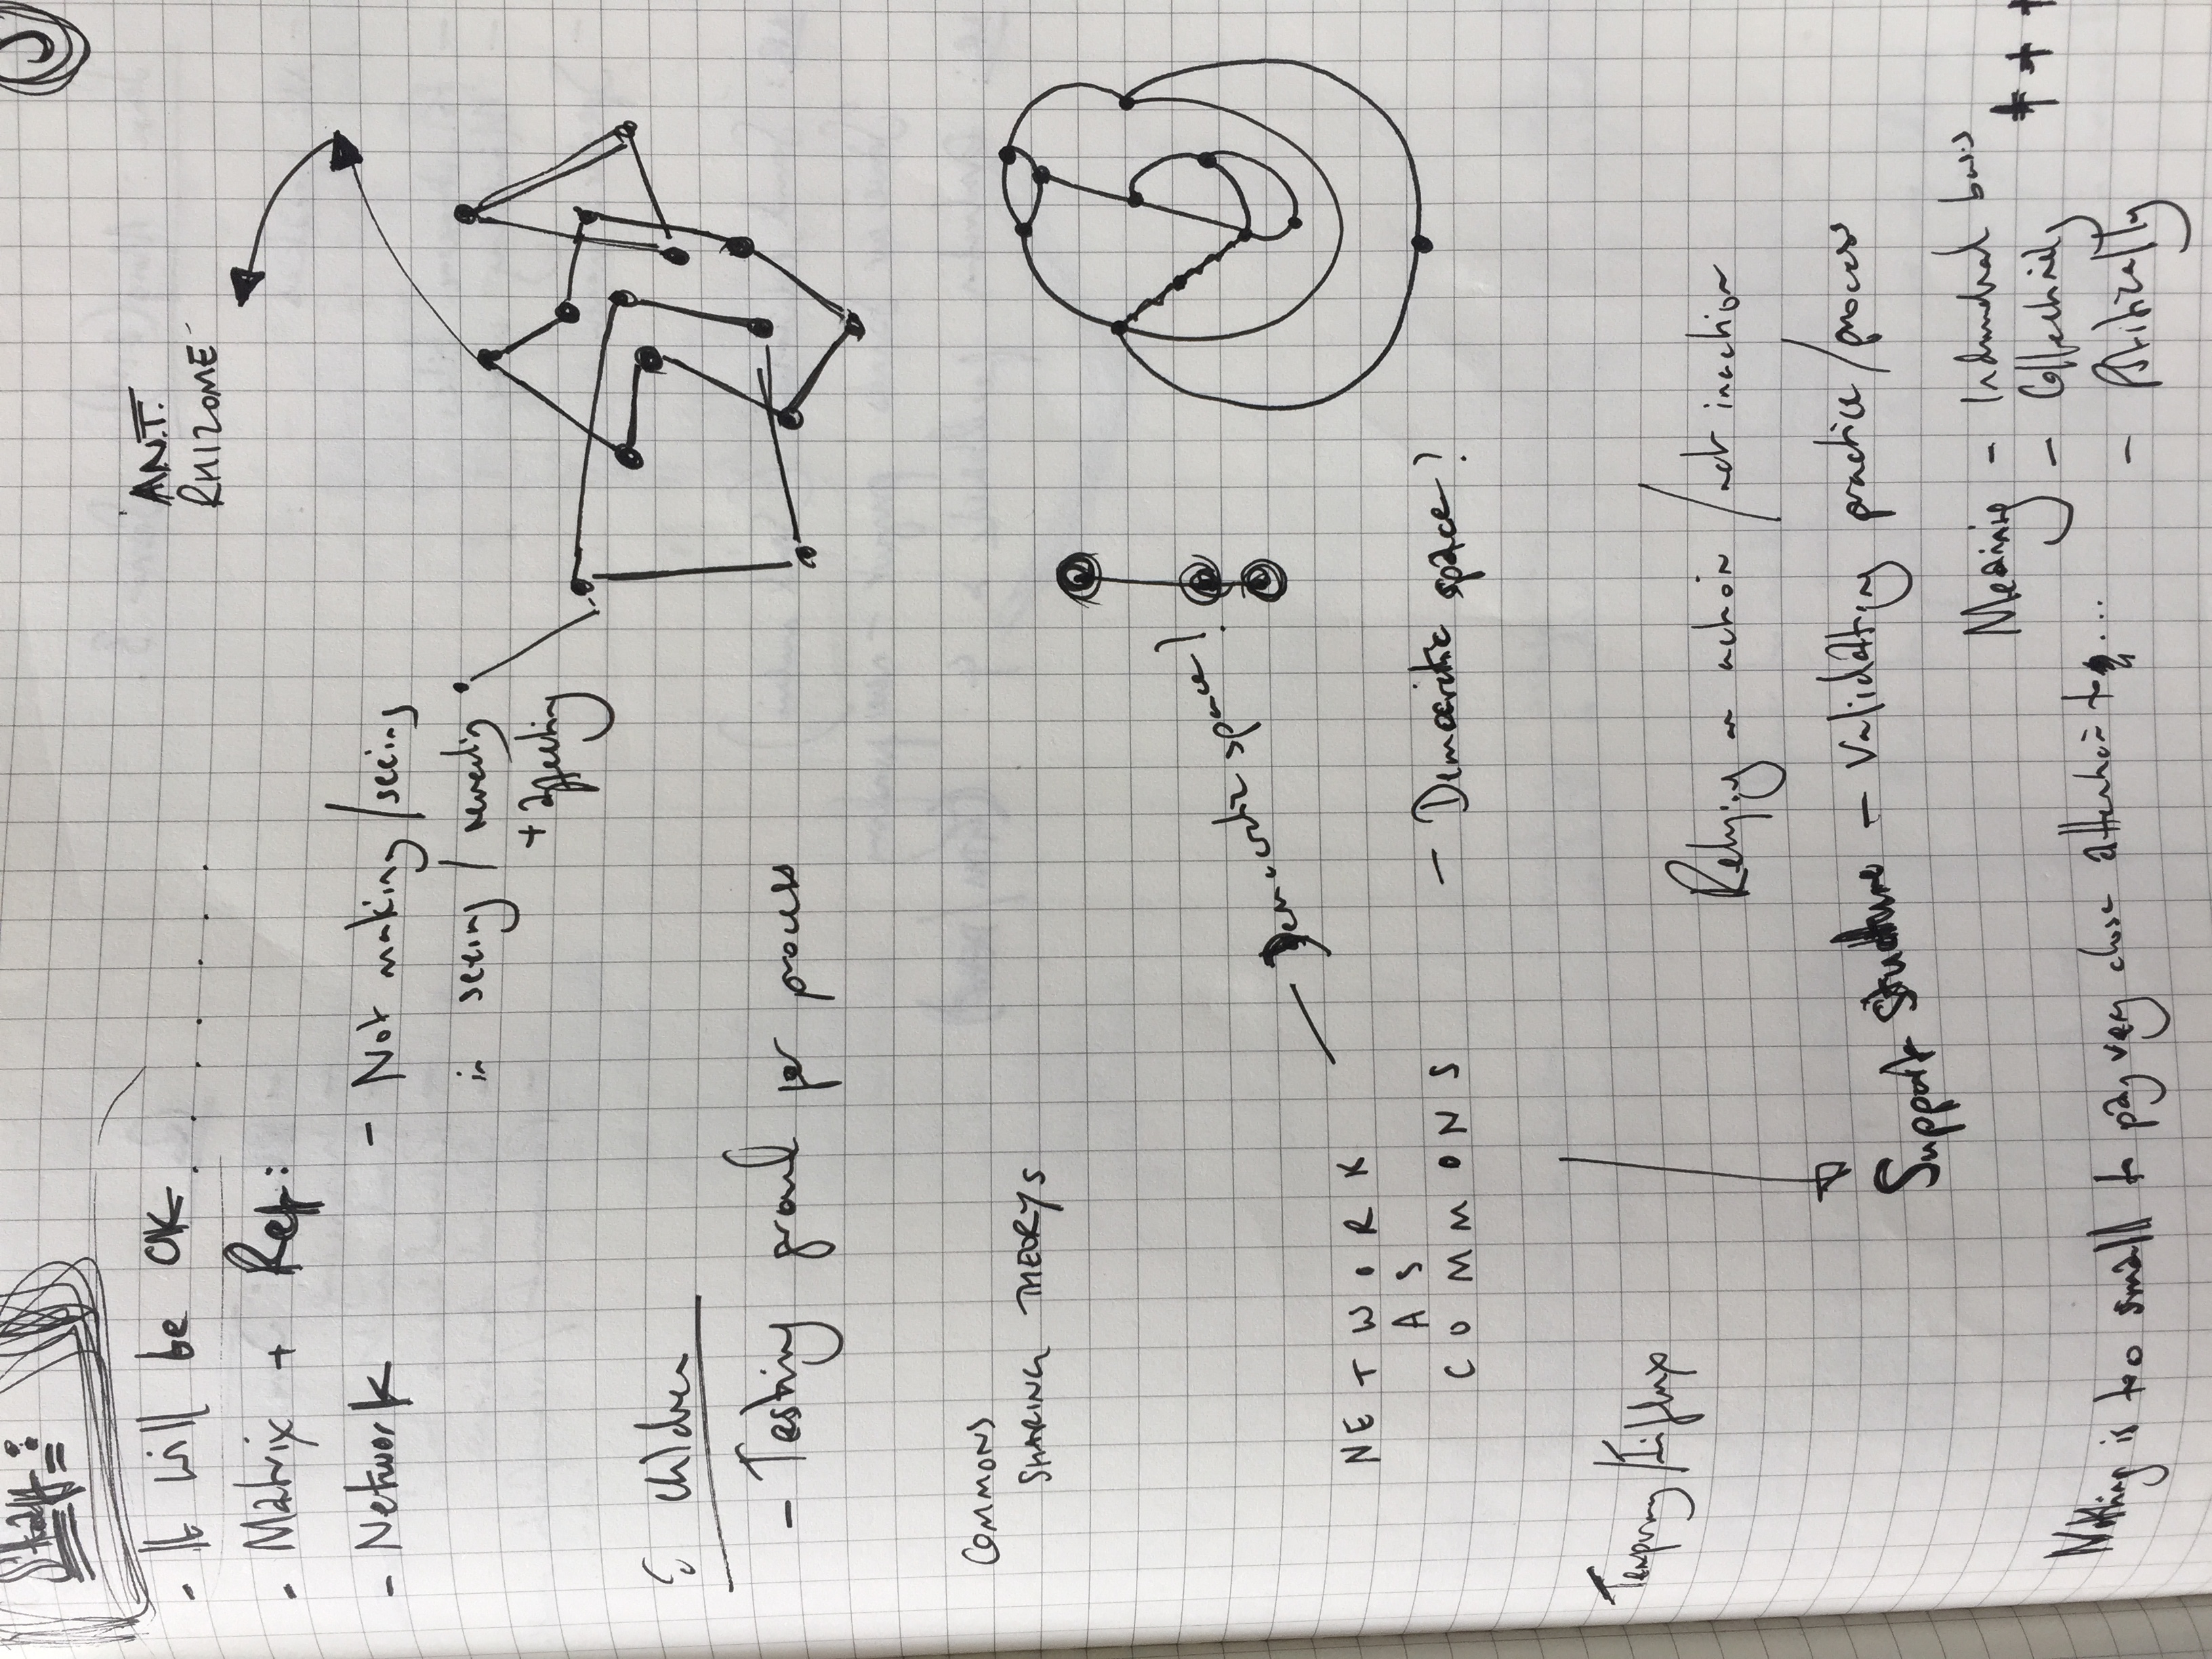 Study:
- It will be OK........
A.N.T.
RHIZOME
- Matrix + Ref:
- Network
- Not making/seeing
in seeing / revealing
+ affecting
Children
- Testing ground for process
COMMONS
SHARING THEORYS
- Democratic space?
NETWORK
AS
COMMONS
- Democratic space?
Temporary/Influx
Relying on action / not inaction
Support structure - Validating practice/process
Meaning - Individual basis
- Collectively
+ + +
- Politically
Nothing is too small to pay very close attention to ...